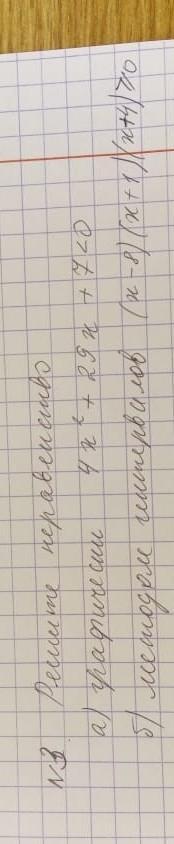 N3. Решите неравенство
а) графически 4x² + 29x + 7 < 0
б) методом интервалов (x-8)(x+1)(x+4) ≥ 0